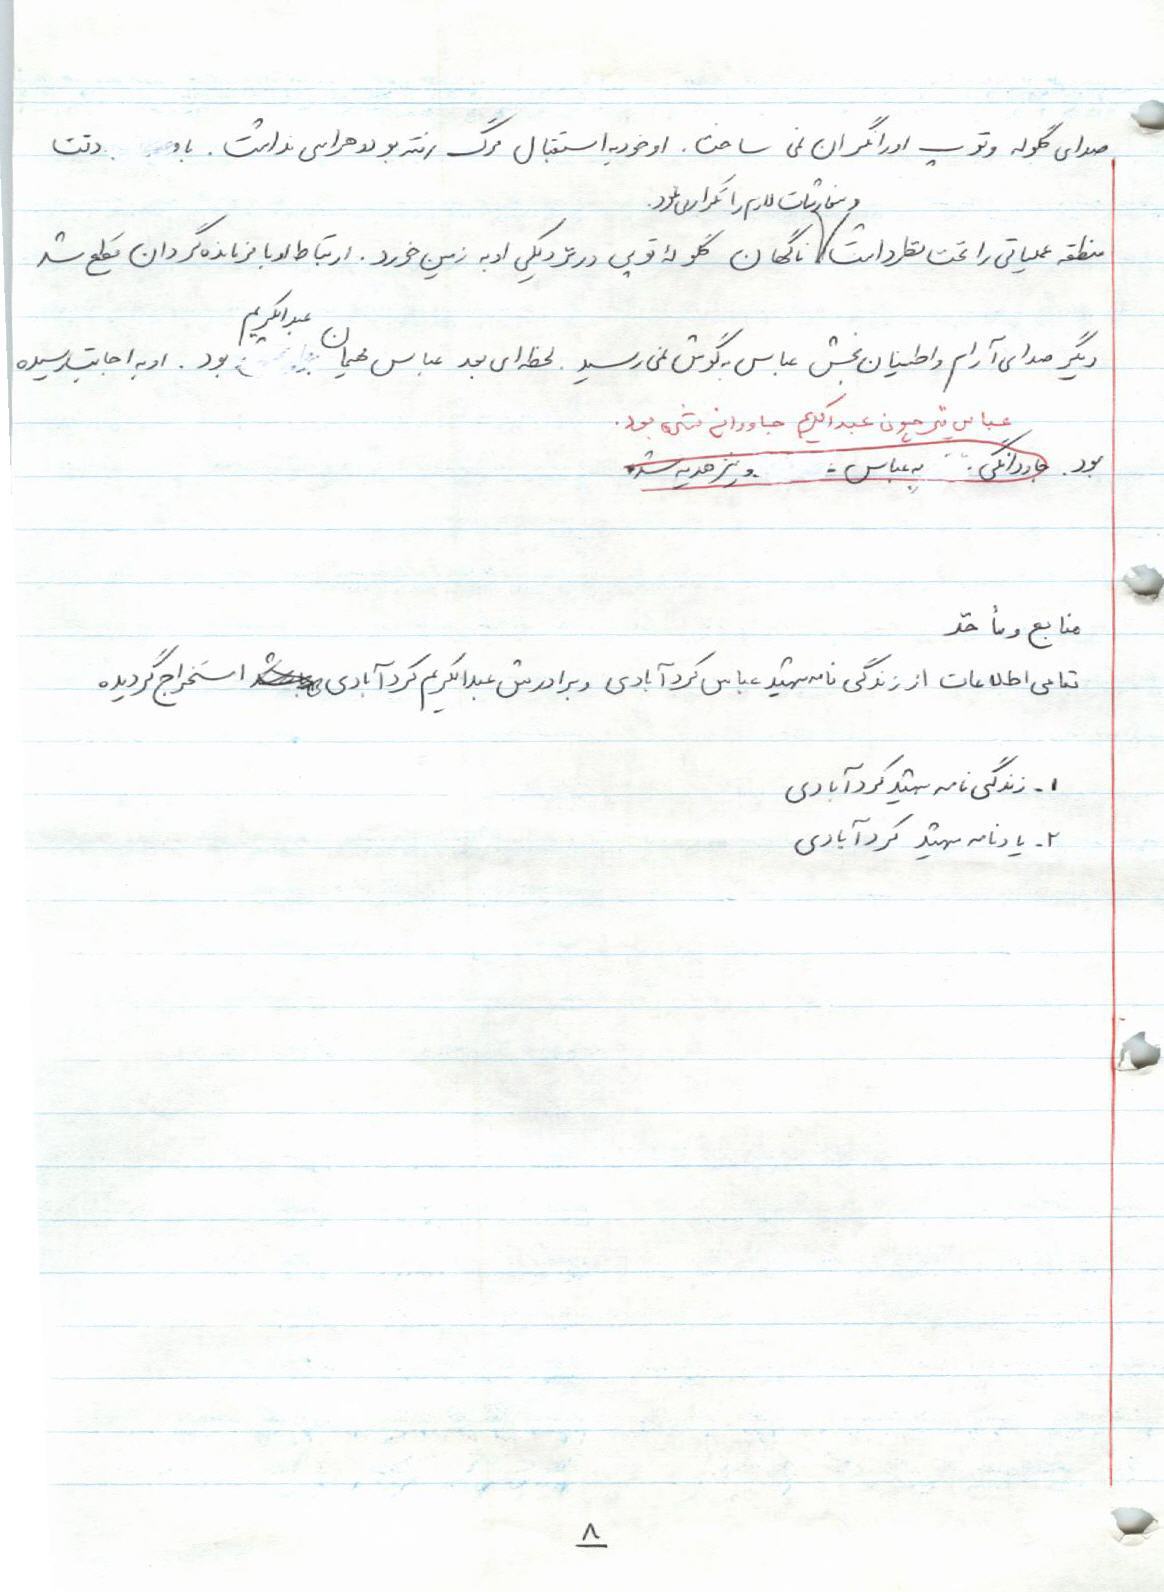 صدای گلوله و توپ او را نگران نمی ساخت. او خود به استقبال مرگ رفته بود و هراسی نداشت. با دقت
و سفارشات لازم را تکرار می نمود.
منطقه عملیاتی را تحت نظر داشت ناگهان گلوله توپی در نزدیکی او به زمین خورد. ارتباط او با فرمانده گردان قطع شد
عبدالکریم
دیگر صدای آرام و اطمینان بخش عباس به گوش نمی رسید. لحظه ای بعد عباس میهمان بود. او به اجابت رسیده
عباس نیز چون عبدالکریم جاودانه شده بود.
بود. جاودانگی به عباس نیز هدیه شد
منابع و مأخذ
تمامی اطلاعات از زندگی نامه شهید عباس کردآبادی و برادرش عبدالکریم کردآبادی استخراج گردیده
۱- زندگی نامه شهید کردآبادی
۲- یادنامه شهید کردآبادی
۸